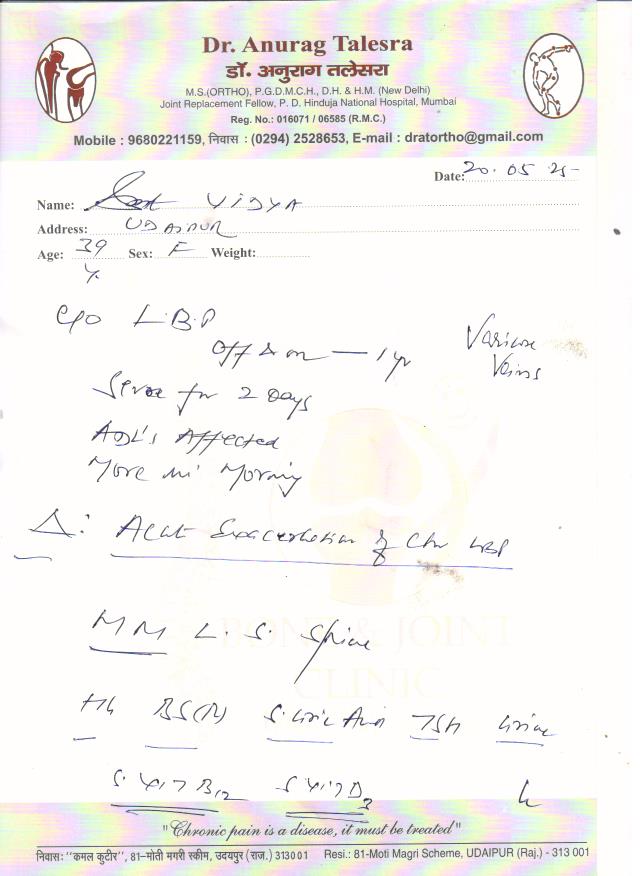 Dr. Anurag Talesra
डॉ. अनुराग तलेसरा
M.S.(ORTHO), P.G.D.M.C.H., D.H. & H.M. (New Delhi)
Joint Replacement Fellow, P. D. Hinduja National Hospital, Mumbai
Reg. No.: 016071 / 06585 (R.M.C.)
Mobile : 9680221159, निवास : (0294) 2528653, E-mail : dratortho@gmail.com
Date: 20.05.25
Name: VIDYA
Address: UDAIPUR
Age: 39 Y. Sex: F Weight:
C/O L.B.P
Off & on — 1 yr
Varicose Veins
Severe for 2 Days
ADL's Affected
More in Morning
Δ: Acute Exacerbation of Chr LBP
L. S. Spine
BONE & JOINT
CLINIC
Hb BS(R) S. Uric Acid TSH Urine
S. VIT B12 S VIT D3
"Chronic pain is a disease, it must be treated"
निवास: "कमल कुटीर", 81-मोती मगरी स्कीम, उदयपुर (राज.) 313001 Resi.: 81-Moti Magri Scheme, UDAIPUR (Raj.) - 313 001